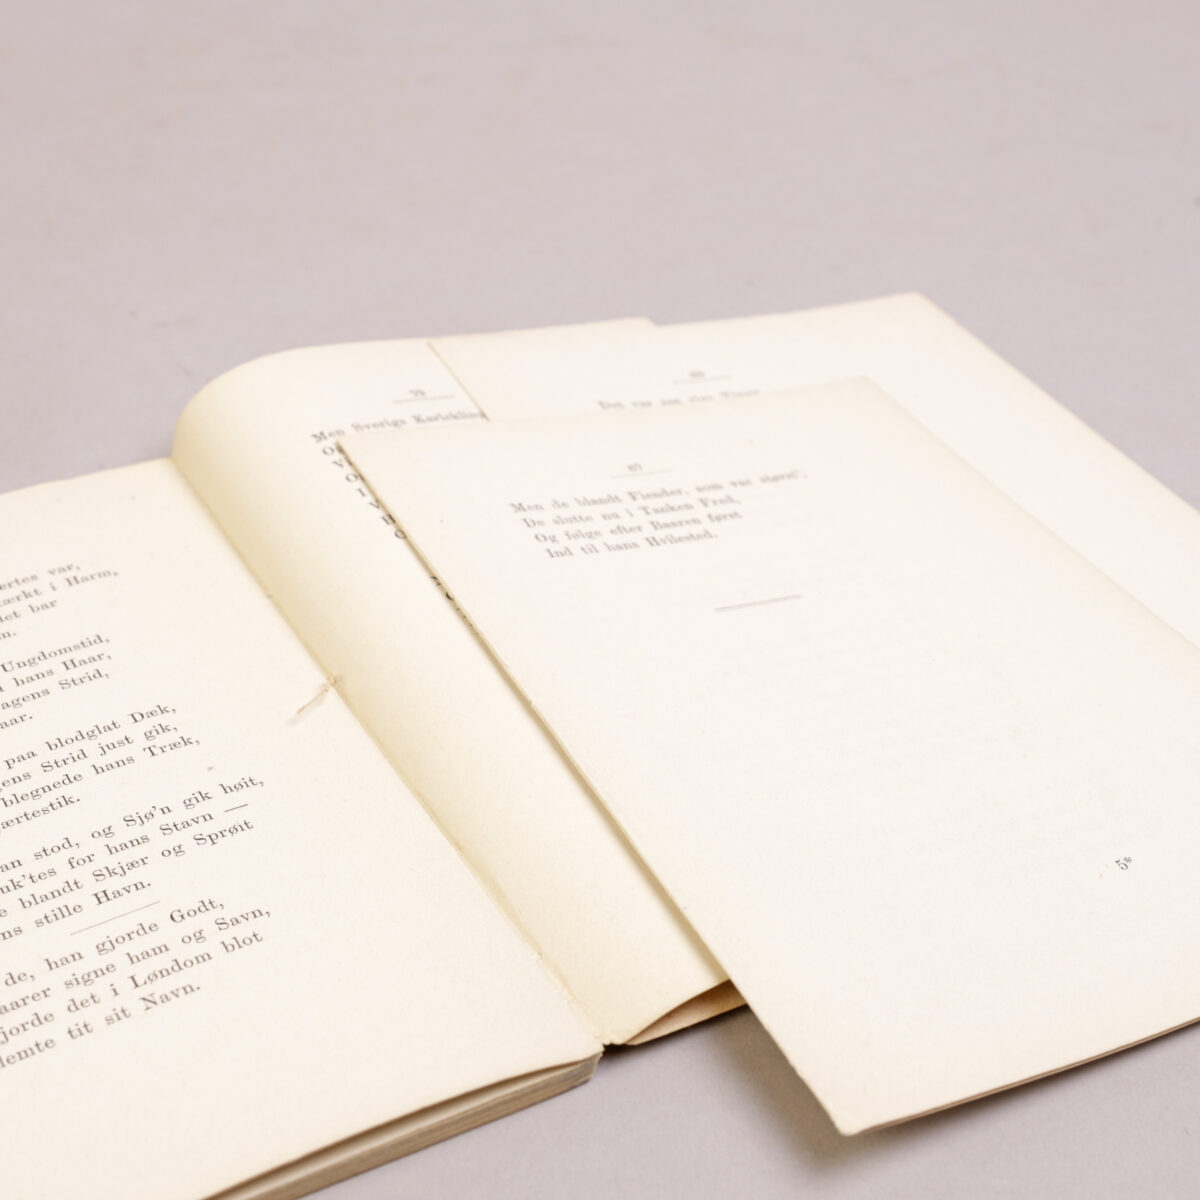 ertes var,
tærkt i Harm,
det bar
Ungdomstid,
i hans Haar,
agens Strid,
aar.
paa blodglat Dæk,
gens Strid just gik,
blegnede hans Træk,
ærtestik.
an stod, og Sjø'n gik høit,
uk'tes for hans Stavn —
e blandt Skjær og Sprøit
ns stille Havn.
de, han gjorde Godt,
aarer signe ham og Savn,
jorde det i Løndom blot
lemte tit sit Navn.
Men Sverigs
67
Men de blandt Fiender, som var størst',
De slutte nu i Tanken Fred,
Og følge efter Baaren først
Ind til hans Hvilested.
5*
Det var